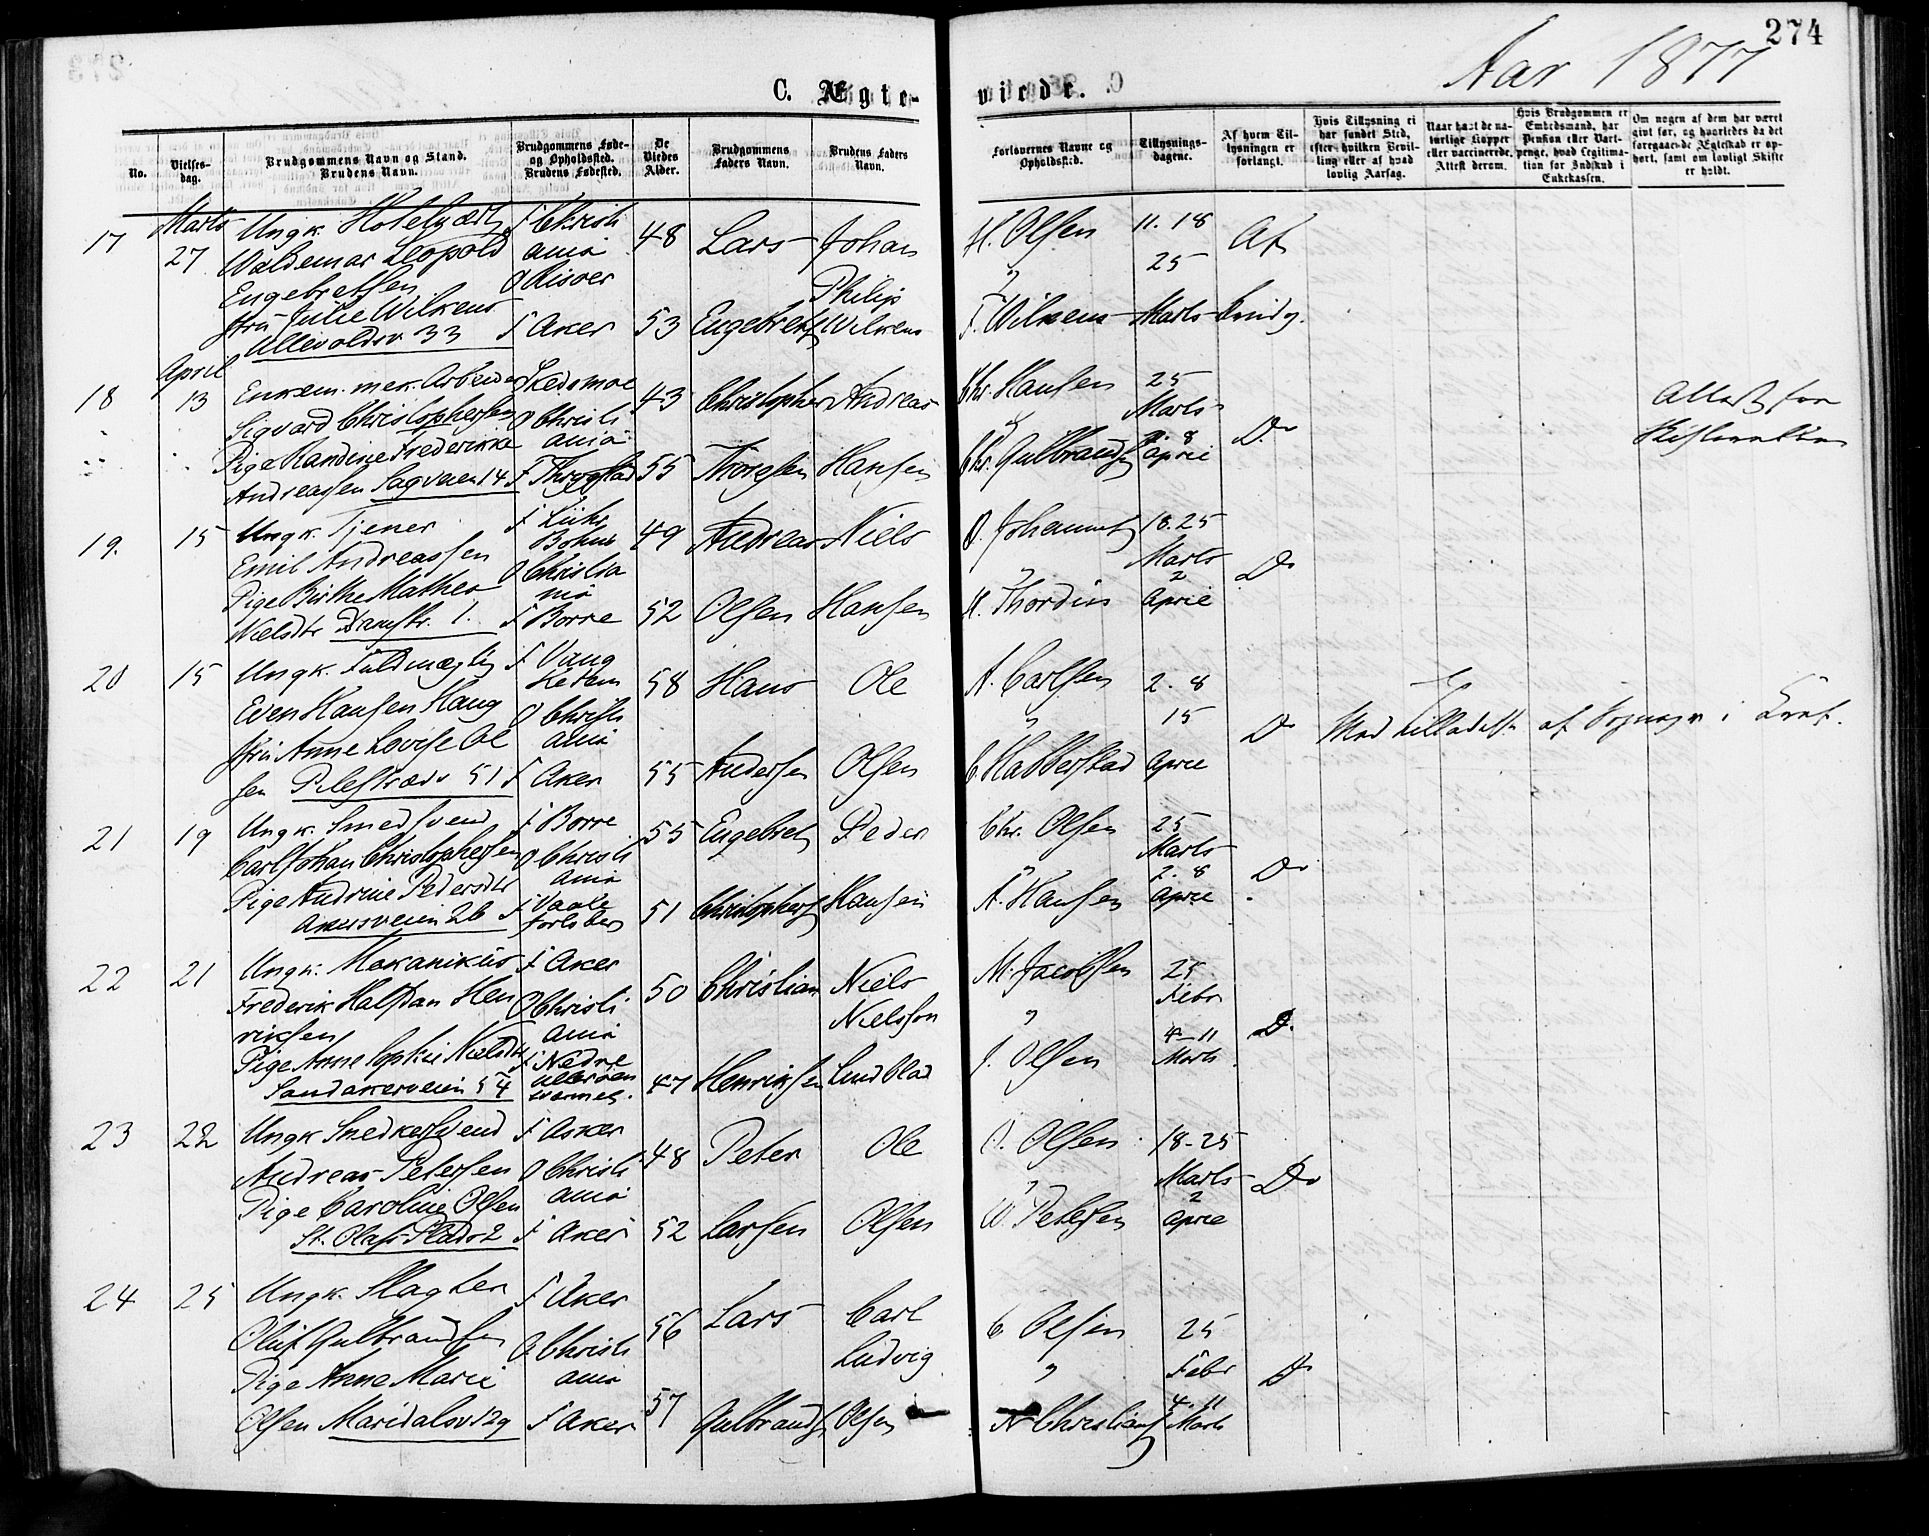 274
Aar 1877
C. Ægte-
viede.
No.
Vielses-
dag.
Brudgommens Navn og Stand.
Brudens Navn.
Brudgommens Føde-
og Opholdssted.
Brudens Fødested.
De
Viedes
Alder.
Brudgommens
Faders Navn.
Brudens Faders
Navn.
Forlovernes Navne og
Opholdssted.
Tillysnings-
dagene.
Af hvem Til-
lysningen er
forlangt.
Hvis Tillysning ei
har fundet Sted,
efter hvilken Bevil-
ling eller af hvad
lovlig Aarsag.
Naar havt de na-
turlige Kopper
eller vaccinerede.
Attest derom.
Hvis Brudgommen er
Embedsmand, har
Pension eller Vart-
penge, hvad Legitima-
tion for Indskud i
Enkekassen.
Om nogen af dem har været
givt før, og hvorledes da det
foregaaende Ægteskab er op-
hørt, samt om lovligt Skifte
er holdt.
17 Marts 27
Ungk. Hotelvært
Waldemar Leopold
Engebretsen
Julie Wilkens
Ullevoldsv 33
F Christi
ania
O Risøer
F Aker
48
53
Lars
Engebrets
Johan
Philip
Wilkens
H. Olsen
"
F. Wilkens
11. 18
25
Marts
Af
18 April 13
Enkem. mek. Arbeider
Sigvard Christophersen
Pige Randine Frederikke
Andreasen Sagveien 14
Skedsmoe
O Christi
ania
F Thrygstad
43
55
Christopher
Thoresen
Andreas
Hansen
Chr. Hansen
"
Chr. Gulbrands
25
Marts
8
April
Do
Attest fra
Skifteretten
19. 15
Ungk. Tjener
Emil Andreassen
Pige Birthe Mathea
Nielsdtr 1.
F
O Christia
nia
F Borre
49
52
Andreas
Olsen
Niels
Hansen
O. Johannes
"
H. Thordin
18. 25
Marts
2
April
Do
20 15
Ungk. Fuldmægtig
Even Hansen Haug
Anne Lovise Ol
sen Pilestræde 51
F Vang
Hedem
O Christi
ania
F Aker
58
55
Hans
Andersen
Ole
Olsen
A. Carlsen
"
C. Habberstad
2. 8
15
April
Do
Med tilladelse af Sognepr i
21 19
Ungk. Smedsvend
Carl Johan Christophersen
Pige Andrine Pedersdtr
Akersveien 26
F Borre
O Christi
ania
F Vaale
Jarlsberg
55
51
Engebret
Christophers
Peder
Hansen
Chr. Olsen
"
A. Hansen
25
Marts
2. 8
April
Do
22 21
Ungk. Mekanikus
Frederik Halfdan Hen
riksen
Pige Anne Sophie Nielsdtr
Sandakerveien 54
F Aker
O Christi
ania
F Nedre
50
47
Christian
Henriksen
Niels
Nielsson
Lundblad
M. Jacobsen
"
J. Olsen
25
Febr
4-11
Marts
Do
23 22
Ungk Snedkersvend
Andreas Petersen
Pige Caroline Olsen
St. Olafs Plads 2
F Asker
O Christi
ania
F Aker
48
52
Peter
Larsen
Ole
Olsen
O. Olsen
"
W. Petersen
18-25
Marts
2
April
Do
24 25
Ungk. Slagter
Oluf Gulbrandsen
Pige Anne Marie
Olsen Maridalsv 129
F Aker
O Christi
ania
F Aker
56
57
Lars
Gulbrands
Carl
Ludvig
Olsen
C. Olsen
"
N Christians
25
Febr
4. 11
Marts
Do